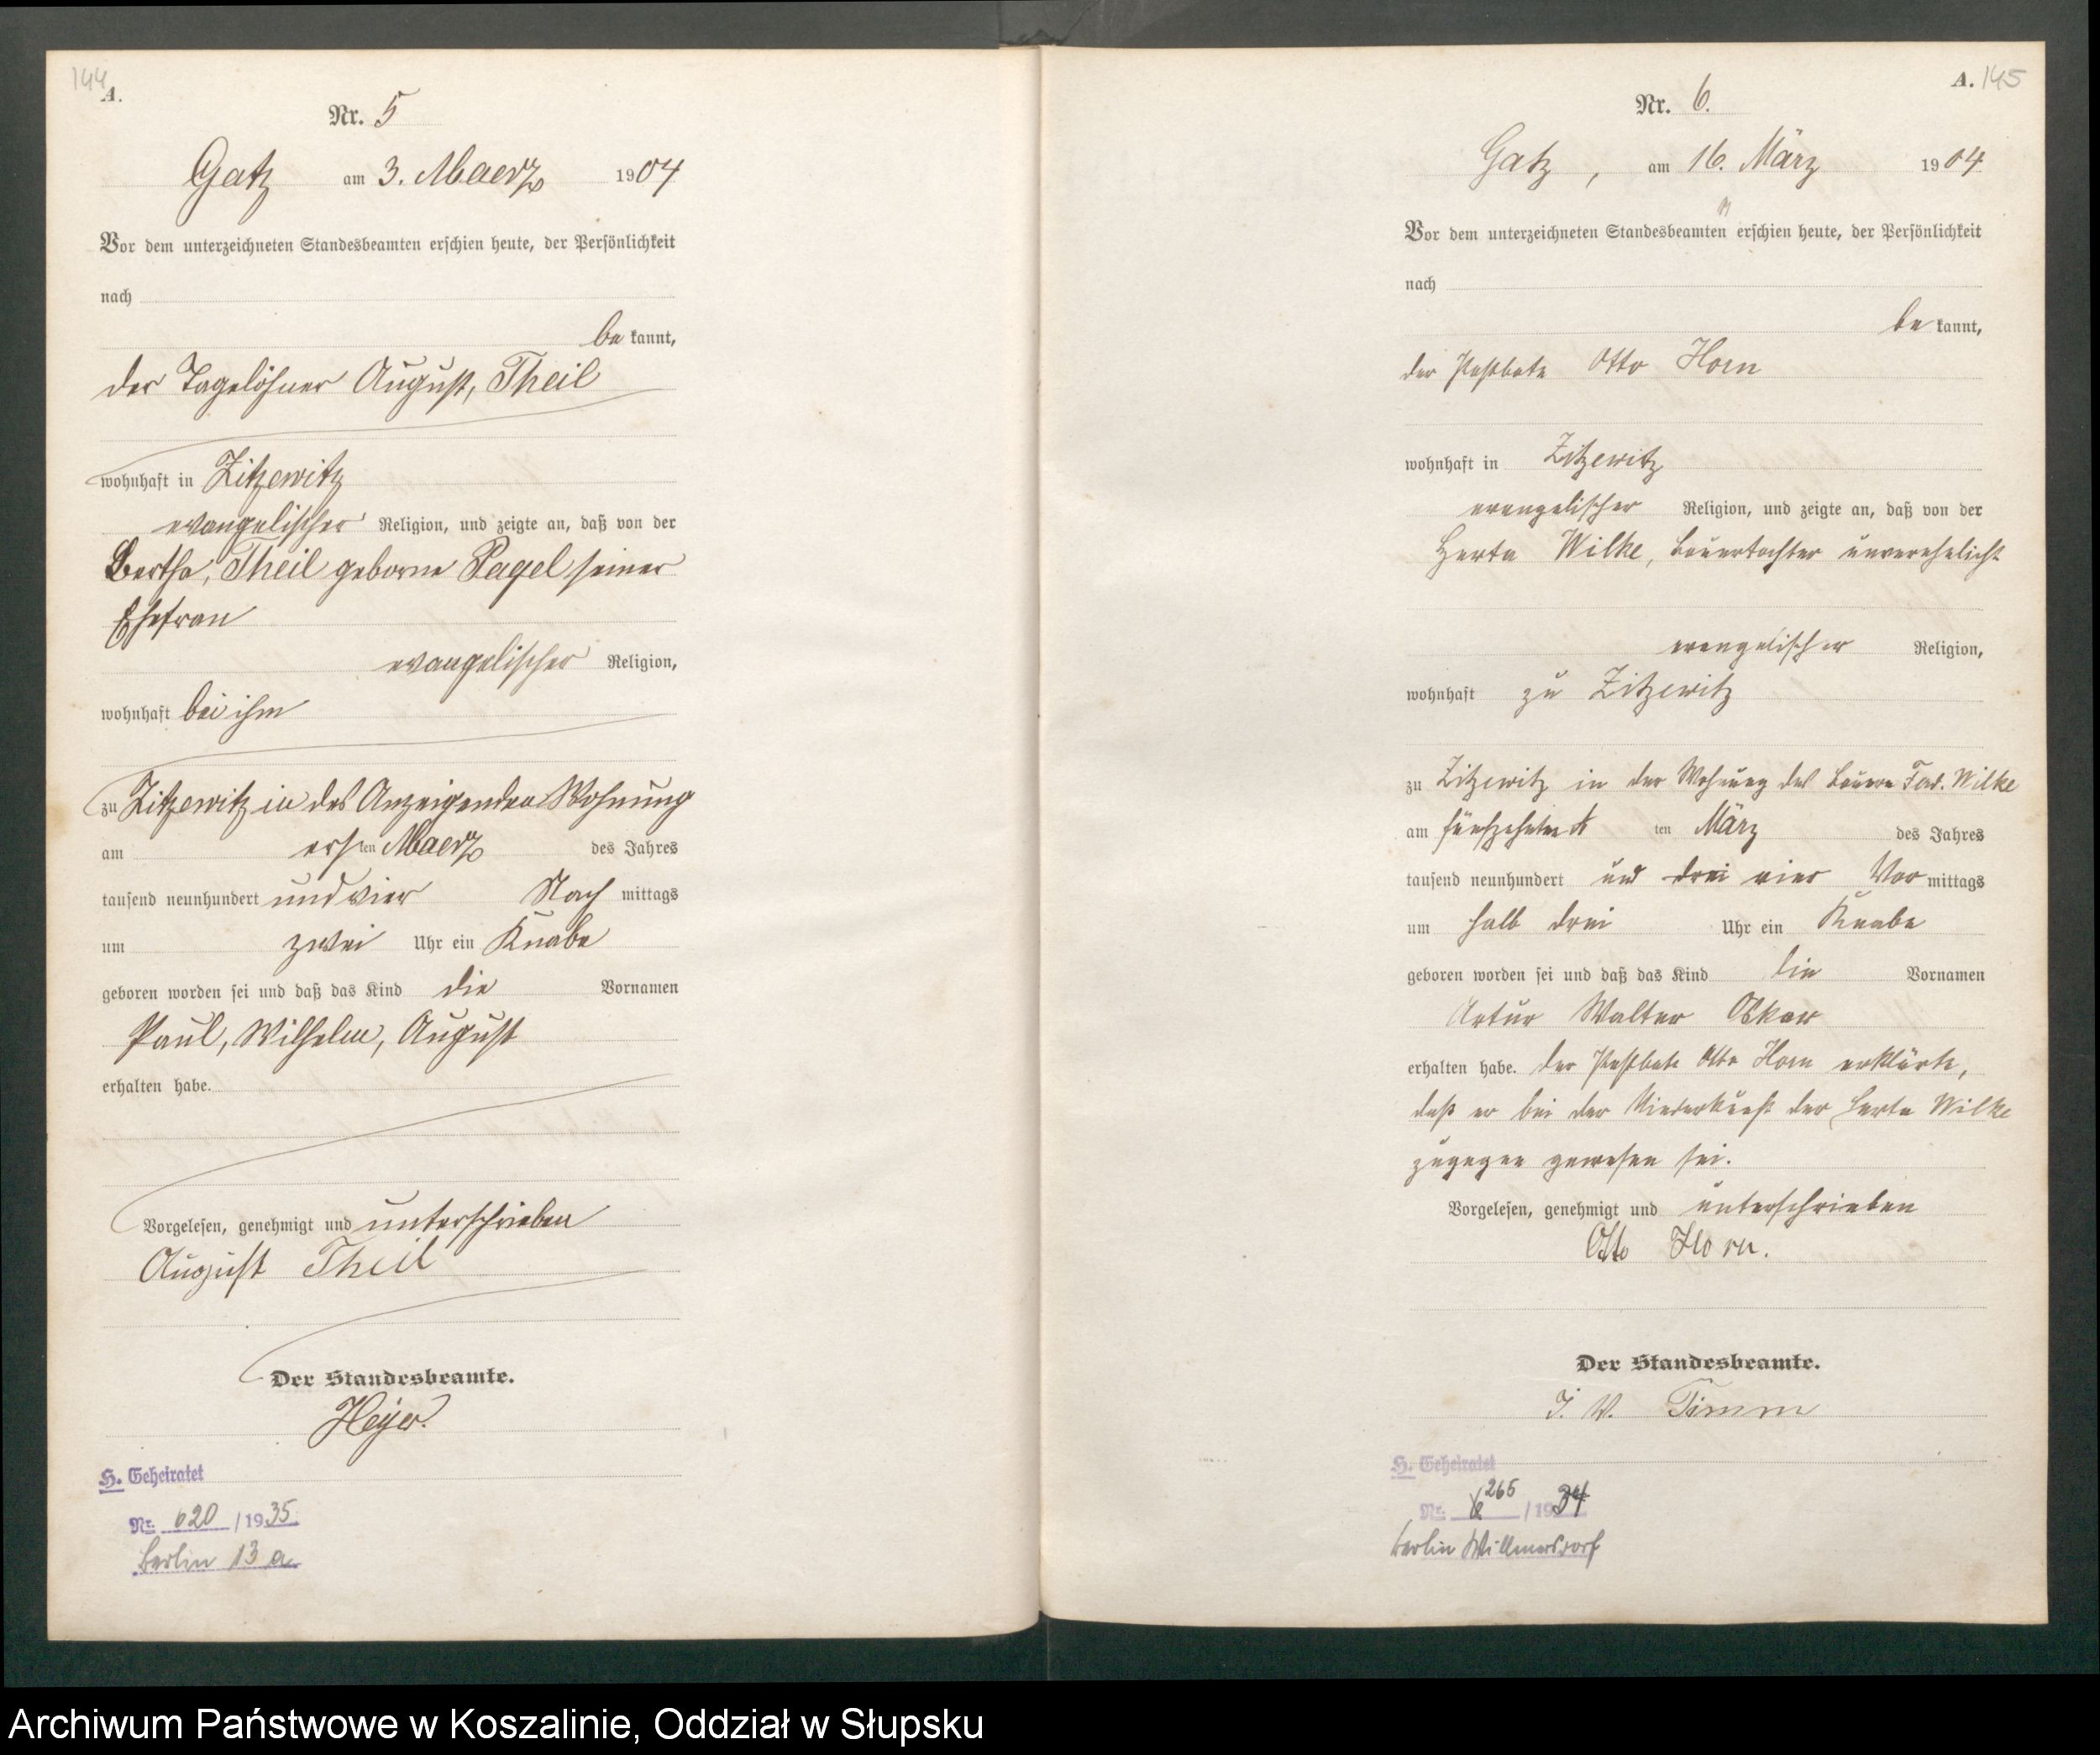 144
A.
Nr. 5
Gatz am 3. Maerz 1904
Vor dem unterzeichneten Standesbeamten erschien heute, der Persönlichkeit
nach
be kannt,
der Tagelöhner August, Theil
wohnhaft in Zitzewitz
evangelischer Religion, und zeigte an, daß von der
Bertha, Theil geborne Pagel seiner
Ehefrau
evangelischer Religion,
wohnhaft bei ihm
zu Zitzewitz in des Anzeigenden Wohnung
am ersten Maerz des Jahres
tausend neunhundert und vier Nach mittags
um zwei Uhr ein Knabe
geboren worden sei und daß das Kind die Vornamen
Paul, Wilhelm, August
erhalten habe.
Vorgelesen, genehmigt und unterschrieben
August Theil
Der Standesbeamte.
Heyer.
H. Geheiratet
Nr. 620 / 1935
Berlin 13 a
A. 145
Nr. 6.
Gatz, am 16. März 1904
Vor dem unterzeichneten Standesbeamten erschien heute, der Persönlichkeit
nach
be kannt,
der Postbote Otto Horn
wohnhaft in Zitzewitz
evangelischer Religion, und zeigte an, daß von der
Herta Wilke, Bauertochter unverehelicht
evangelischer Religion,
wohnhaft zu Zitzewitz
zu Zitzewitz in der Wohnung des Bauern Ferd. Wilke
am fünfzehnten ten März des Jahres
tausend neunhundert und drei vier Vor mittags
um halb drei Uhr ein Knabe
geboren worden sei und daß das Kind die Vornamen
Artur Walter Oskar
erhalten habe. Der Postbote Otto Horn erklärte,
daß er bei der Niederkunft der Herta Wilke
zugegen gewesen sei.
Vorgelesen, genehmigt und unterschrieben
Otto Horn.
Der Standesbeamte.
I. V. Timm
H. Geheiratet
Nr. 265 / 1934
Berlin Willmersdorf
Archiwum Państwowe w Koszalinie, Oddział w Słupsku